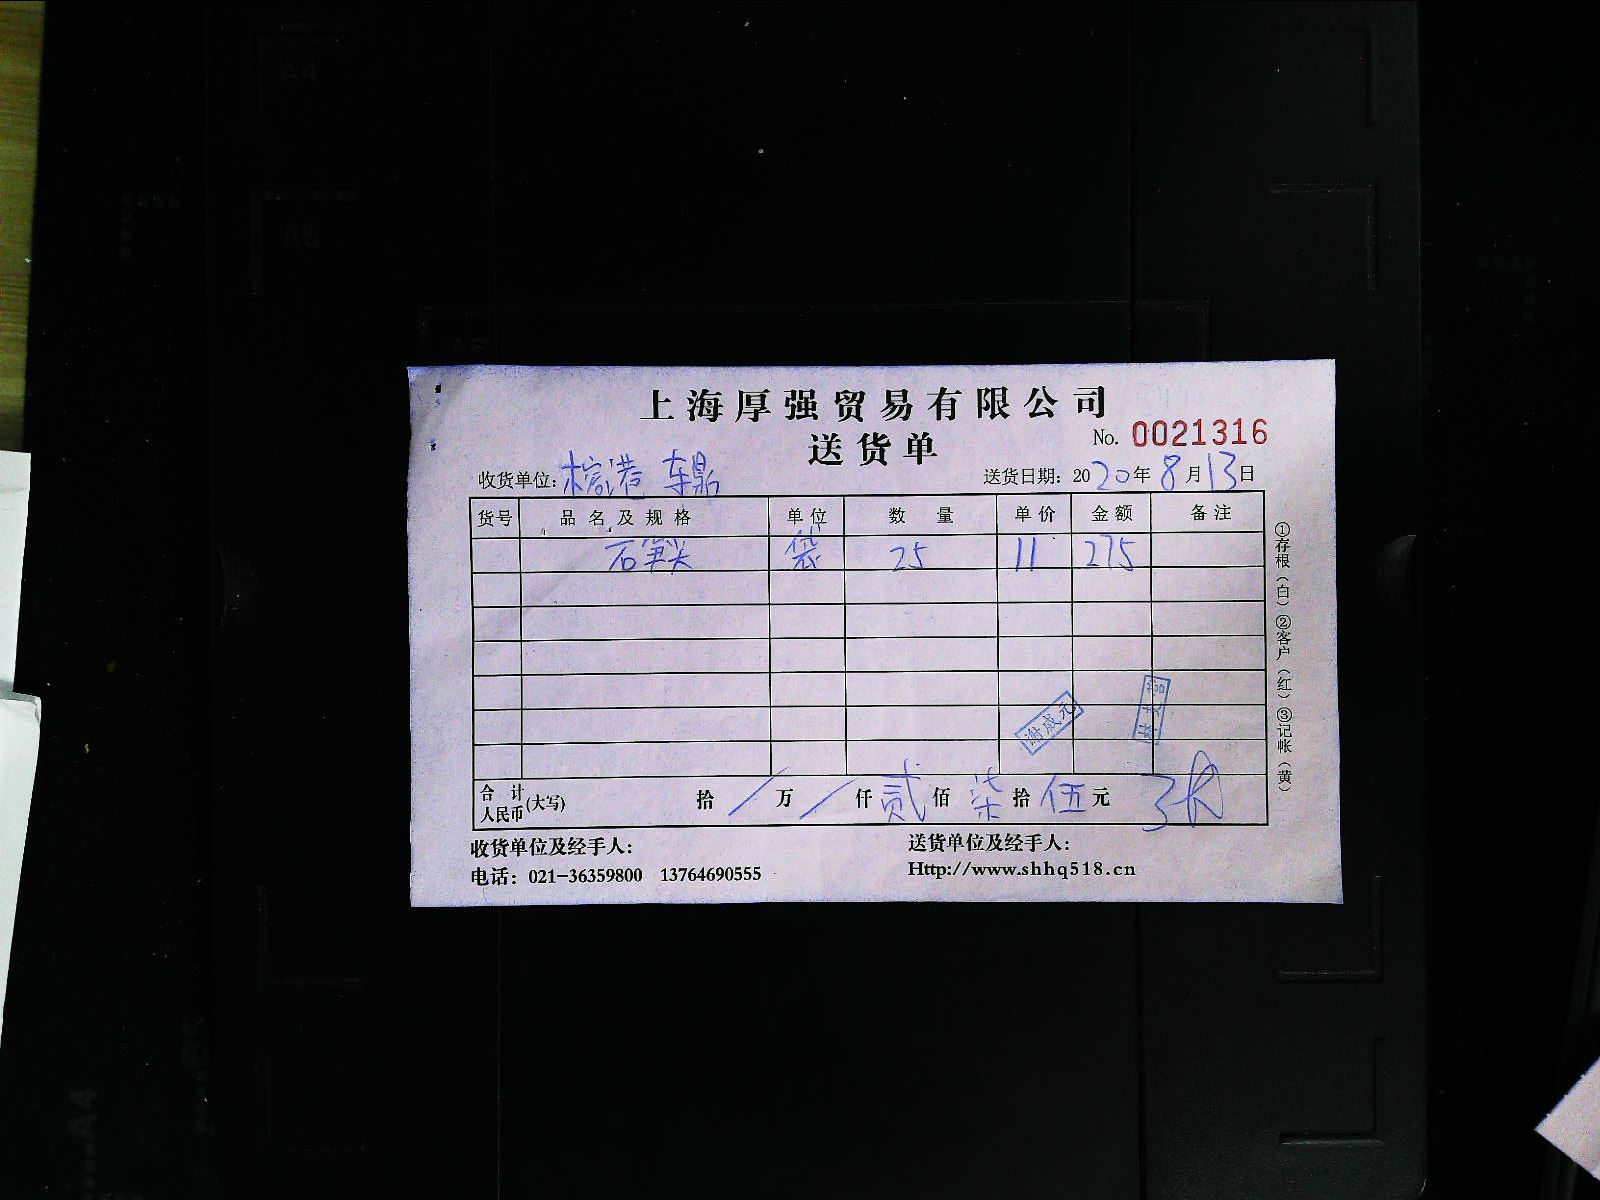 上海厚强贸易有限公司
送货单
No. 0021316
收货单位: 榕港 东鼎
送货日期: 2020年8月13日
货号 品名及规格 单位 数量 单价 金额 备注
石笋尖 袋 25 11 275
谢咸元
合计人民币(大写) 拾/万/仟贰佰柒拾伍元
收货单位及经手人:
送货单位及经手人:
电话: 021-36359800 13764690555
Http://www.shhq518.cn
①存根(白)②客户(红)③记帐(黄)